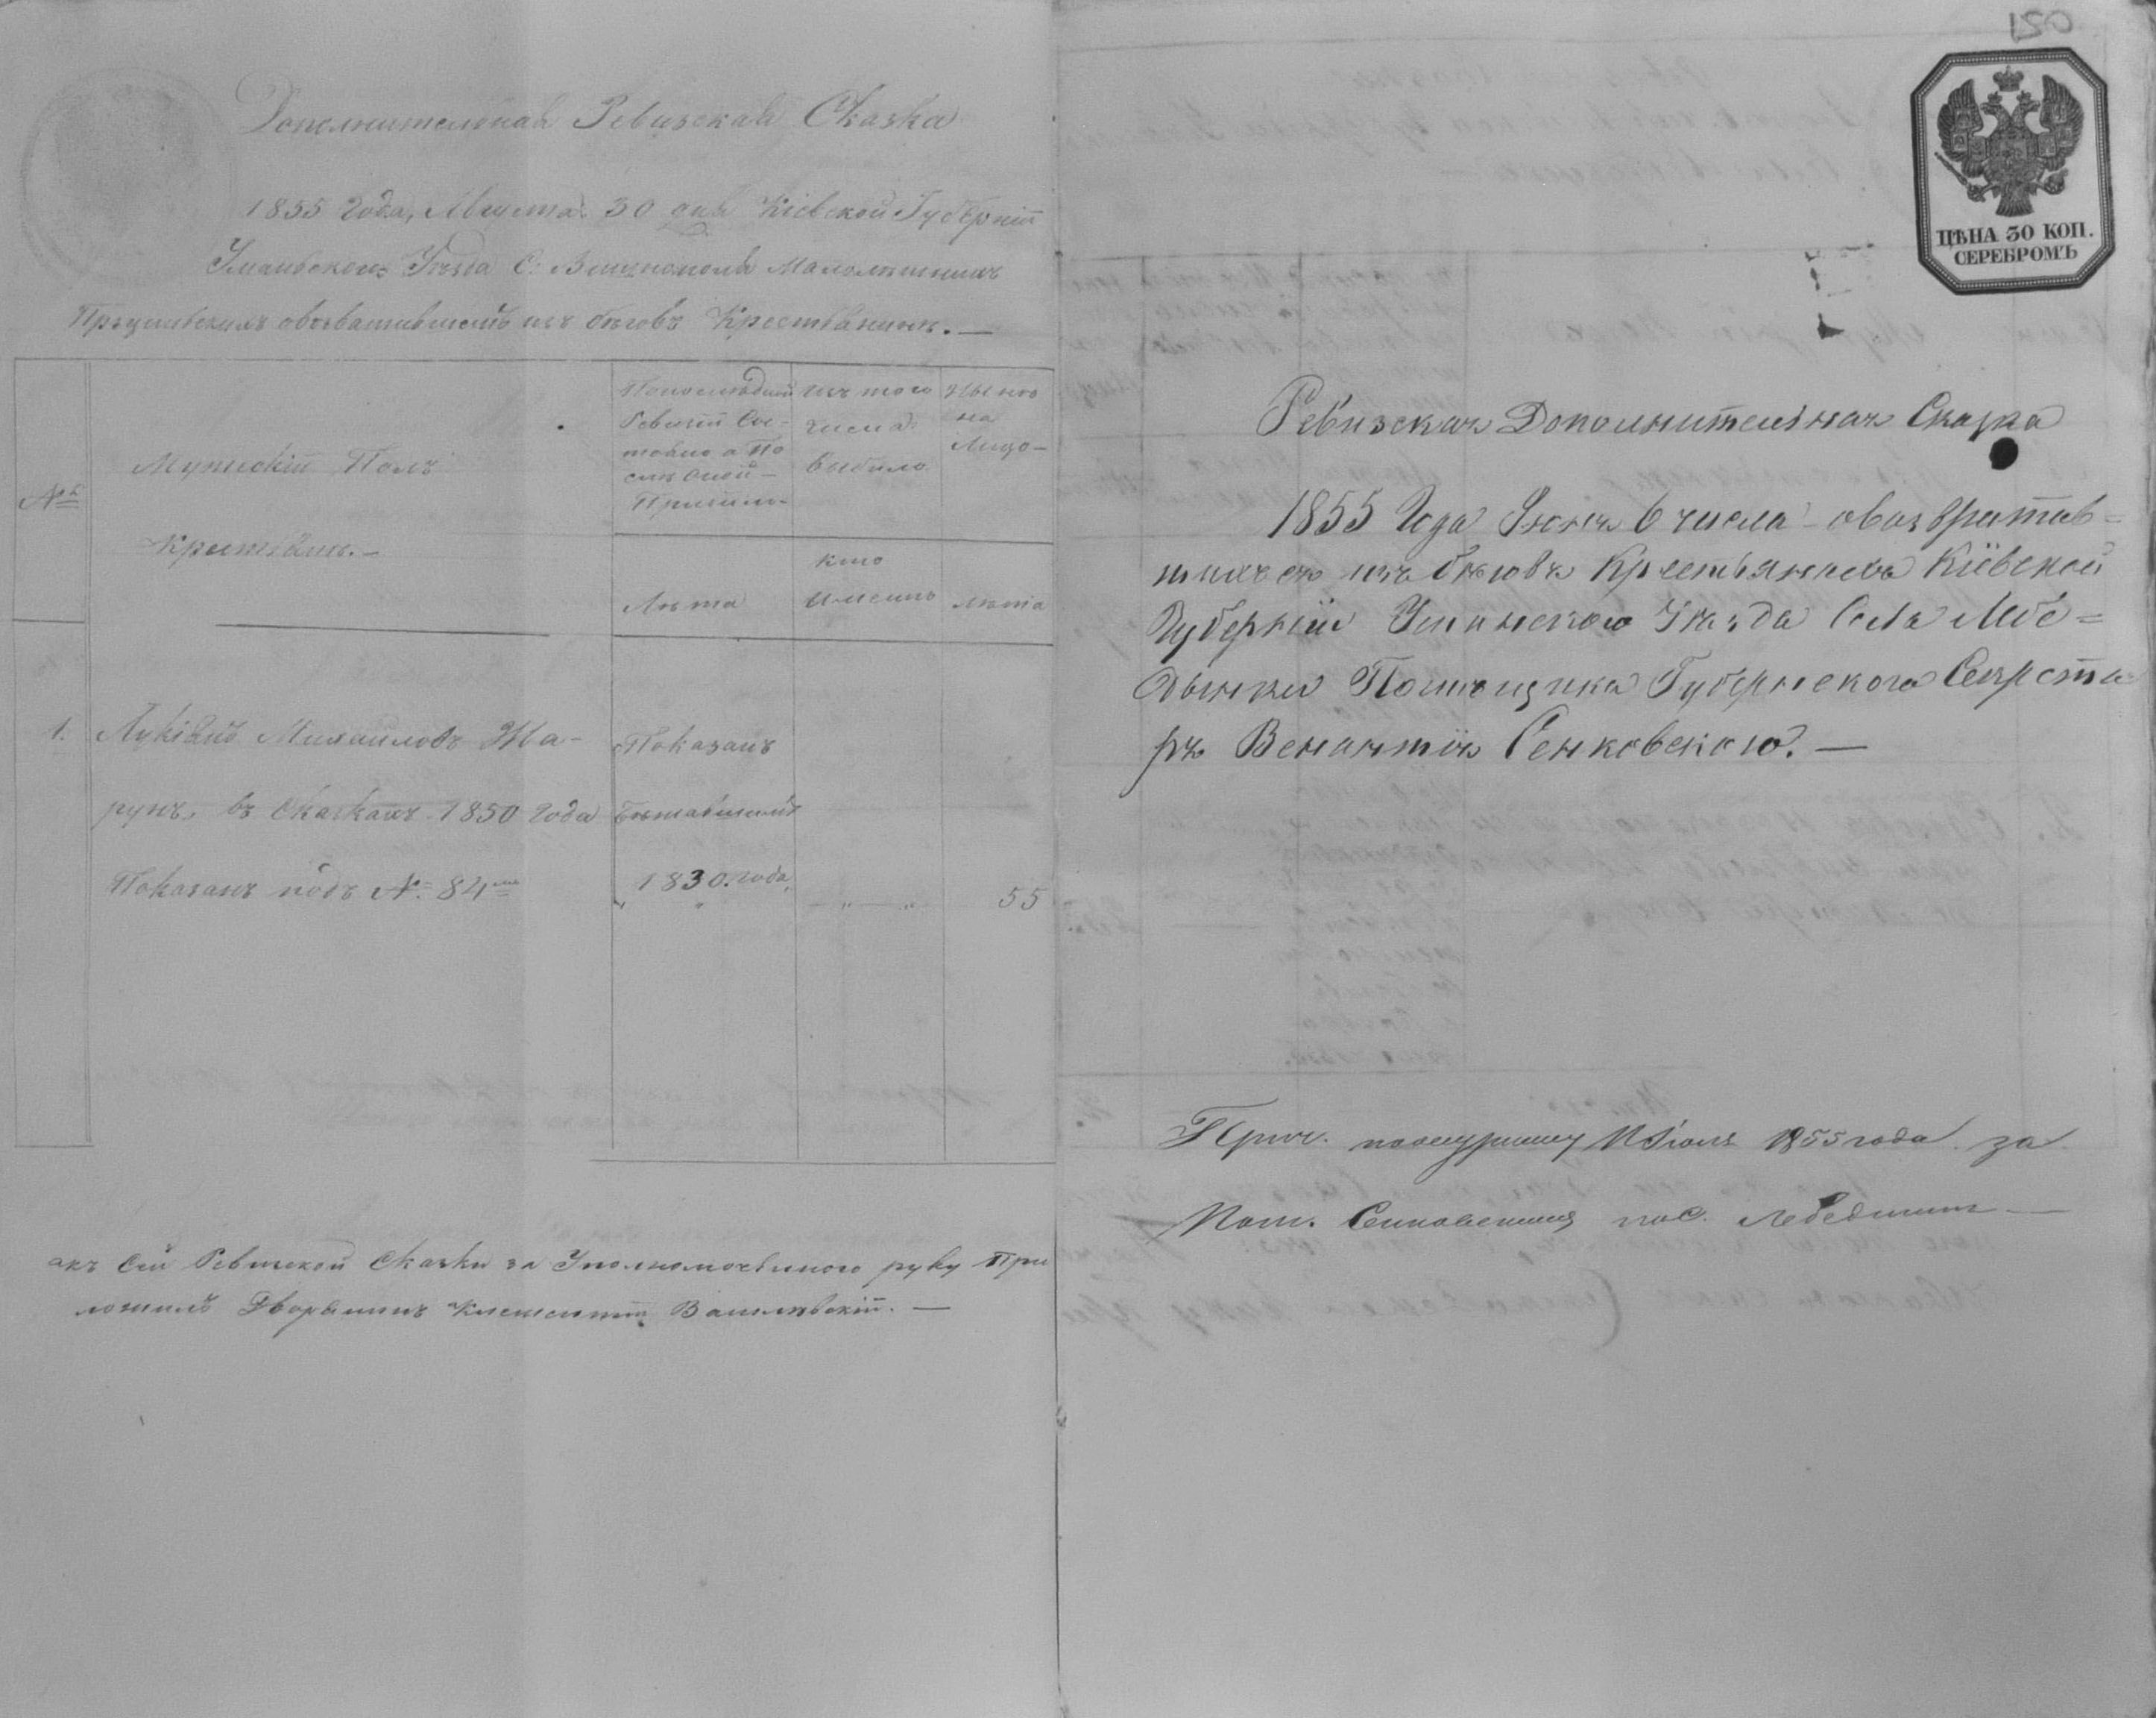 Дополнительная Ревизская Сказка
1855 года, Августа 30 дня Кіевской Губерніи
Уманьского Уѣзда С.
овозватившемся изъ бѣговъ Крестьянинѣ. —
№
Мужескій Полъ
Крестьяне. —
По последній
Ревизіи Сос-
тояло а По
слѣ оной —
Прибыло
Лѣта
Изъ того
числа
Выбыло
кто
именно
Ныне
на
Лицо —
лѣта
1. Лукіянъ Михайловъ Жа-
рунъ, въ Сказкахъ 1850 года
Показанъ подъ № 84
Показанъ
Бежавшимъ
1830. года
55
Сей Ревизской Сказки за Уполномоченного руку При
ложилъ Дворянинъ Климентій Василевскій. —
120
ЦѢНА 30 КОП.
СЕРЕБРОМЪ
Ревизская Дополнительная Сказка
1855 Года Июня 6 числа овозвратив=
шихся изъ бѣговъ Крестьянехъ Кіевской
Губерніи Уманского Уѣзда Села Лебе=
дынки Помѣщика Губернского Секрета
ря Венантія Сенковского. —
1855 года за
Пом. Сенковскимъ